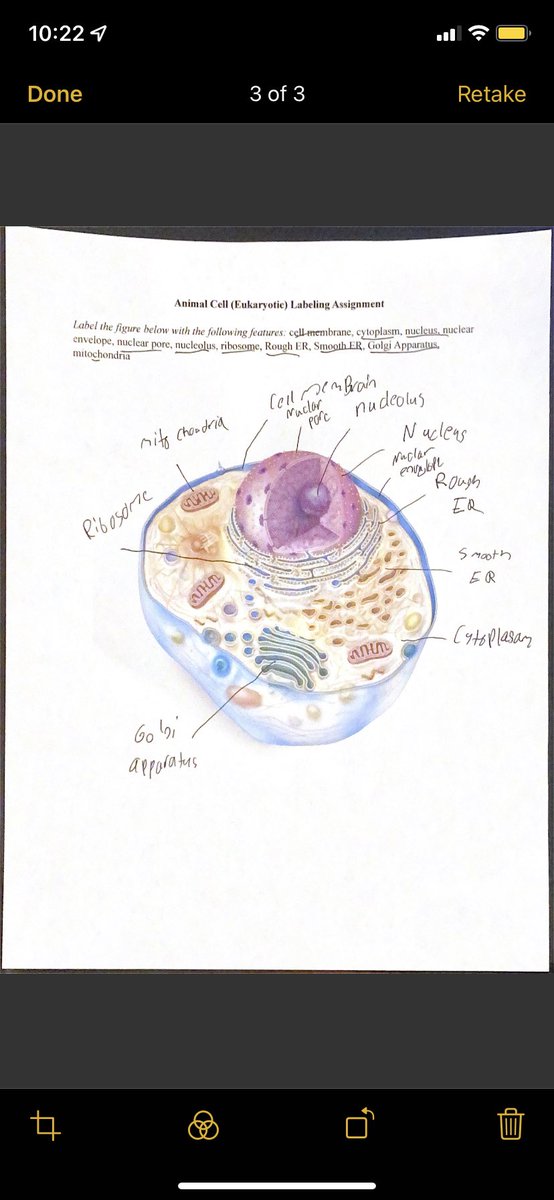 10:22
Done
3 of 3
Retake
Animal Cell (Eukaryotic) Labeling Assignment
Label the figure below with the following features: cell membrane, cytoplasm, nucleus, nuclear
envelope, nuclear pore, nucleolus, ribosome, Rough ER, Smooth ER, Golgi Apparatus,
mitochondria
Cell memBrain
nuclar
pore
nudeolus
mito chondria
Nucleus
nuclar
envelope
Rough
ER
Ribosome
Smooth
ER
Cytoplasam
Golgi
apparatus